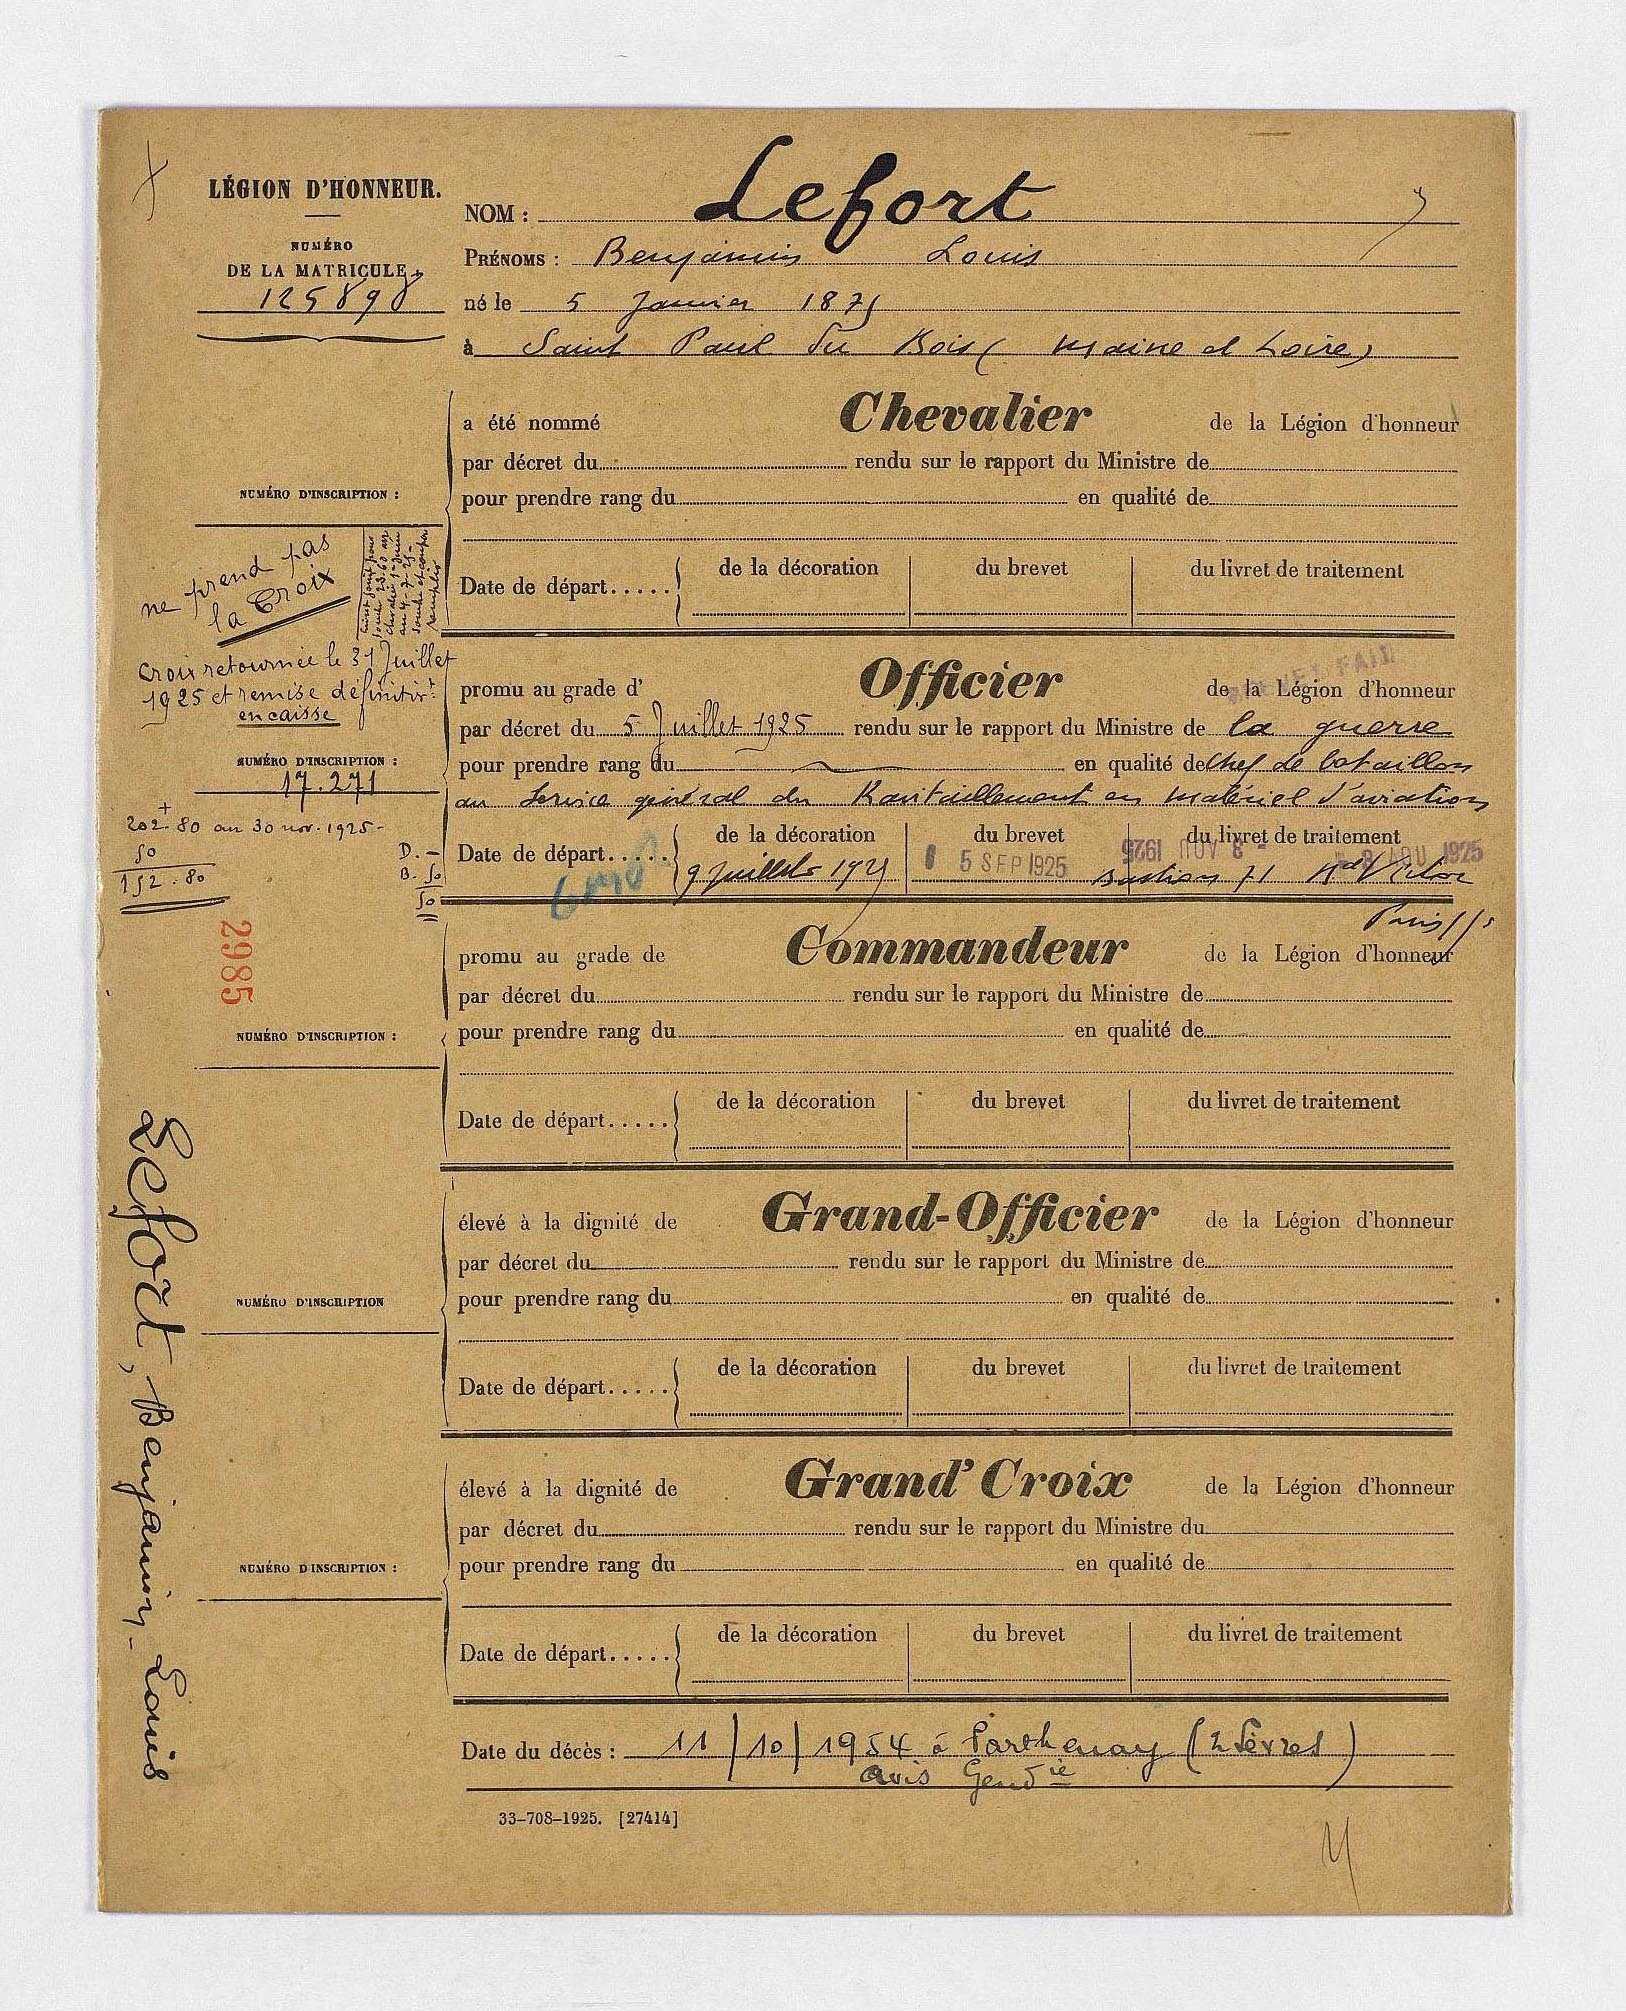 LÉGION D'HONNEUR.
NUMÉRO
DE LA MATRICULE
125898
NOM : Lefort
PRÉNOMS : Benjamin Louis
né le 5 Janvier 1875
à Saint Paul du Bois (Maine et Loire)
a été nommé Chevalier de la Légion d'honneur
par décret du rendu sur le rapport du Ministre de
pour prendre rang du en qualité de
NUMÉRO D'INSCRIPTION :
ne prend pas
la Croix
Date de départ..... de la décoration du brevet du livret de traitement
Croix retournée le 31 Juillet
1925 et remise définitivt
en caisse
promu au grade d' Officier de la Légion d'honneur
BREVET FAIT
par décret du 5 Juillet 1925 rendu sur le rapport du Ministre de la guerre
pour prendre rang du en qualité de chef de bataillon
au Service général du Ravitaillement en matériel d'aviation
NUMÉRO D'INSCRIPTION :
17.271
+
202.80 au 30 nov. 1925-
50
152.80
D. -
B. 50
50
Date de départ..... de la décoration du brevet du livret de traitement
9 juillet 1925
5 SEP 1925
- 8 NOV 1925
1925
bastion 71 Bd Victor
Paris 15
2985
promu au grade de Commandeur de la Légion d'honneur
par décret du rendu sur le rapport du Ministre de
pour prendre rang du en qualité de
NUMÉRO D'INSCRIPTION :
Date de départ..... de la décoration du brevet du livret de traitement
élevé à la dignité de Grand-Officier de la Légion d'honneur
par décret du rendu sur le rapport du Ministre de
pour prendre rang du en qualité de
NUMÉRO D'INSCRIPTION
Date de départ..... de la décoration du brevet du livret de traitement
élevé à la dignité de Grand'Croix de la Légion d'honneur
par décret du rendu sur le rapport du Ministre du
pour prendre rang du en qualité de
NUMÉRO D'INSCRIPTION :
Date de départ..... de la décoration du brevet du livret de traitement
Date du décès : 11/10/1954 à Parthenay (2 Sèvres)
avis Gendie
33-708-1925. [27414]
Lefort, Benjamin-Louis